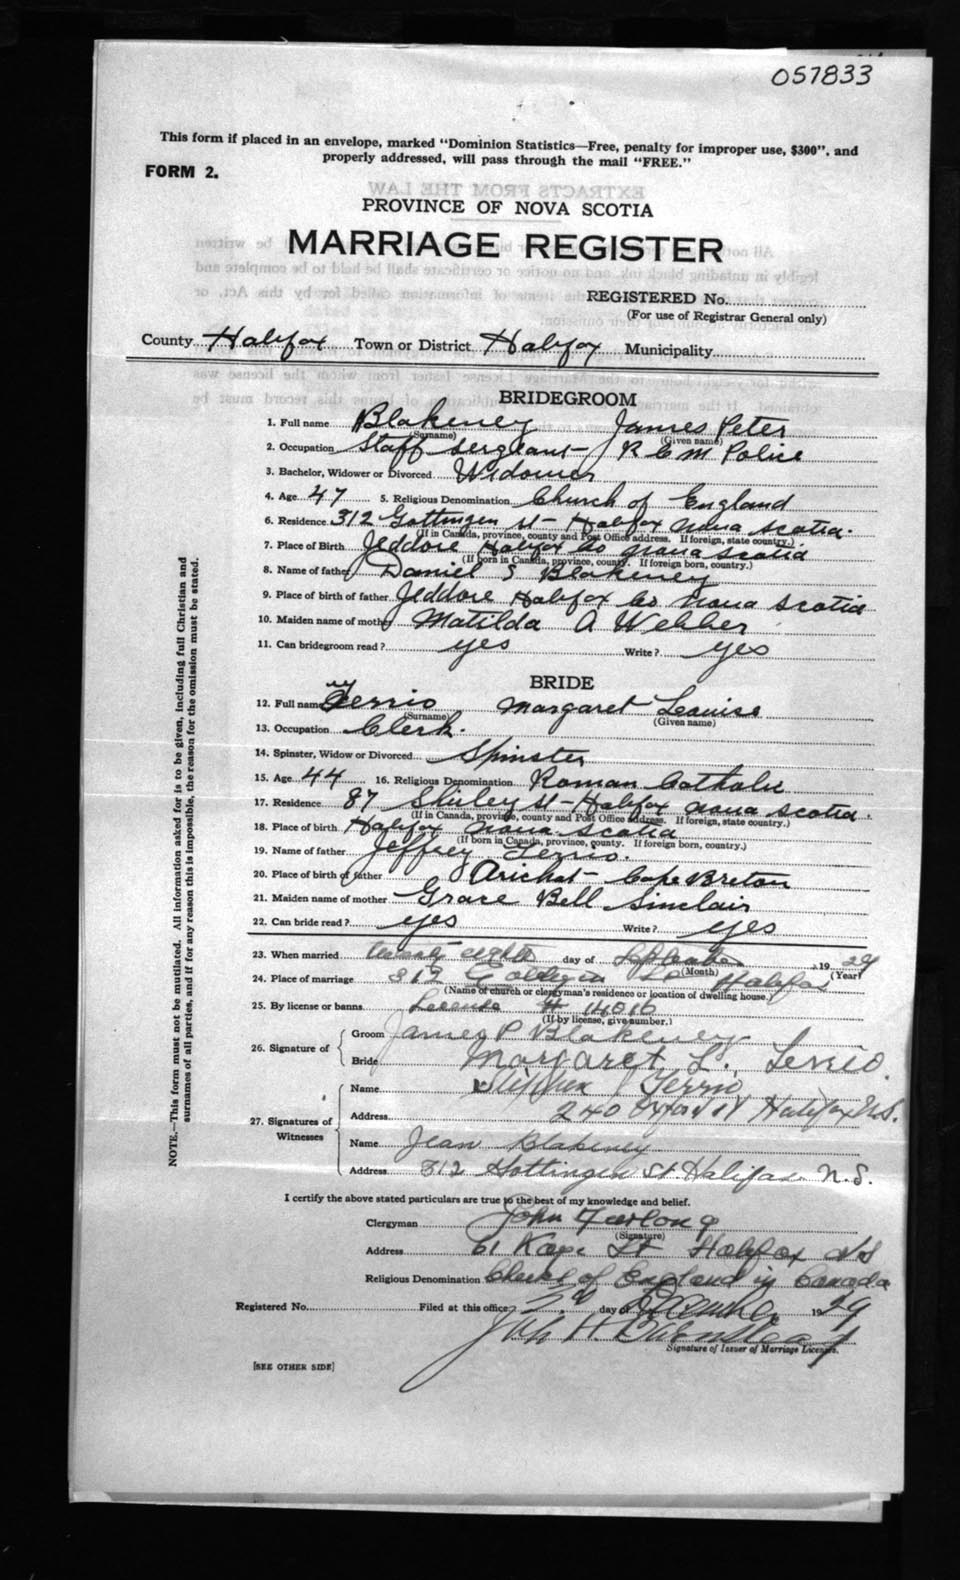 057833
This form if placed in an envelope, marked "Dominion Statistics—Free, penalty for improper use, $300", and
properly addressed, will pass through the mail "FREE."
FORM 2.
EXTRACTS FROM THE LAW
PROVINCE OF NOVA SCOTIA
MARRIAGE REGISTER
REGISTERED No.
(For use of Registrar General only)
County Halifax Town or District Halifax Municipality
BRIDEGROOM
1. Full name Blakeney James Peter
(Surname) (Given name)
2. Occupation Staff Sergeant R C M Police
3. Bachelor, Widower or Divorced Widower
4. Age 47 5. Religious Denomination Church of England
6. Residence 312 Gottingen St Halifax Nova Scotia
(If in Canada, province, county and Post Office address. If foreign, state country.)
7. Place of Birth Jeddore Halifax Co Nova Scotia
(If born in Canada, province, county. If foreign born, country.)
8. Name of father Daniel S Blakeney
9. Place of birth of father Jeddore Halifax Co Nova Scotia
10. Maiden name of mother Matilda A Webber
11. Can bridegroom read? yes Write? yes
BRIDE
12. Full name Terrio Margaret Louise
(Surname) (Given name)
13. Occupation Clerk.
14. Spinster, Widow or Divorced Spinster
15. Age 44 16. Religious Denomination Roman Catholic
17. Residence 87 Shirley St Halifax Nova Scotia.
(If in Canada, province, county and Post Office address. If foreign, state country.)
18. Place of birth Halifax Nova Scotia
(If born in Canada, province, county. If foreign born, country.)
19. Name of father Jeffrey Terrio.
20. Place of birth of father Arichat Cape Breton
21. Maiden name of mother Grace Bell Sinclair
22. Can bride read? yes Write? yes
23. When married twenty eighth day of September 1929
(Month) (Year)
24. Place of marriage 312 Gottingen St Halifax
(Name of church or clergyman's residence or location of dwelling house.)
25. By license or banns License #
(If by license, give number.)
26. Signature of
Groom James P Blakeney
Bride Margaret L. Terrio.
27. Signatures of Witnesses
Name Stephen J Terrio
Address 240 Oxford St Halifax N.S.
Name Jean Blakeney
Address 312 Gottingen St Halifax N.S.
I certify the above stated particulars are true to the best of my knowledge and belief.
Clergyman John Furlong
(Signature)
Address 61 Kaye St Halifax NS
Religious Denomination Church of England in Canada
Registered No. Filed at this office day of 1929
Signature of Issuer of Marriage Licenses.
[SEE OTHER SIDE]
NOTE.—This form must not be mutilated. All information asked for is to be given, including full Christian and
surnames of all parties, and if for any reason this is impossible, the reason for the omission must be stated.